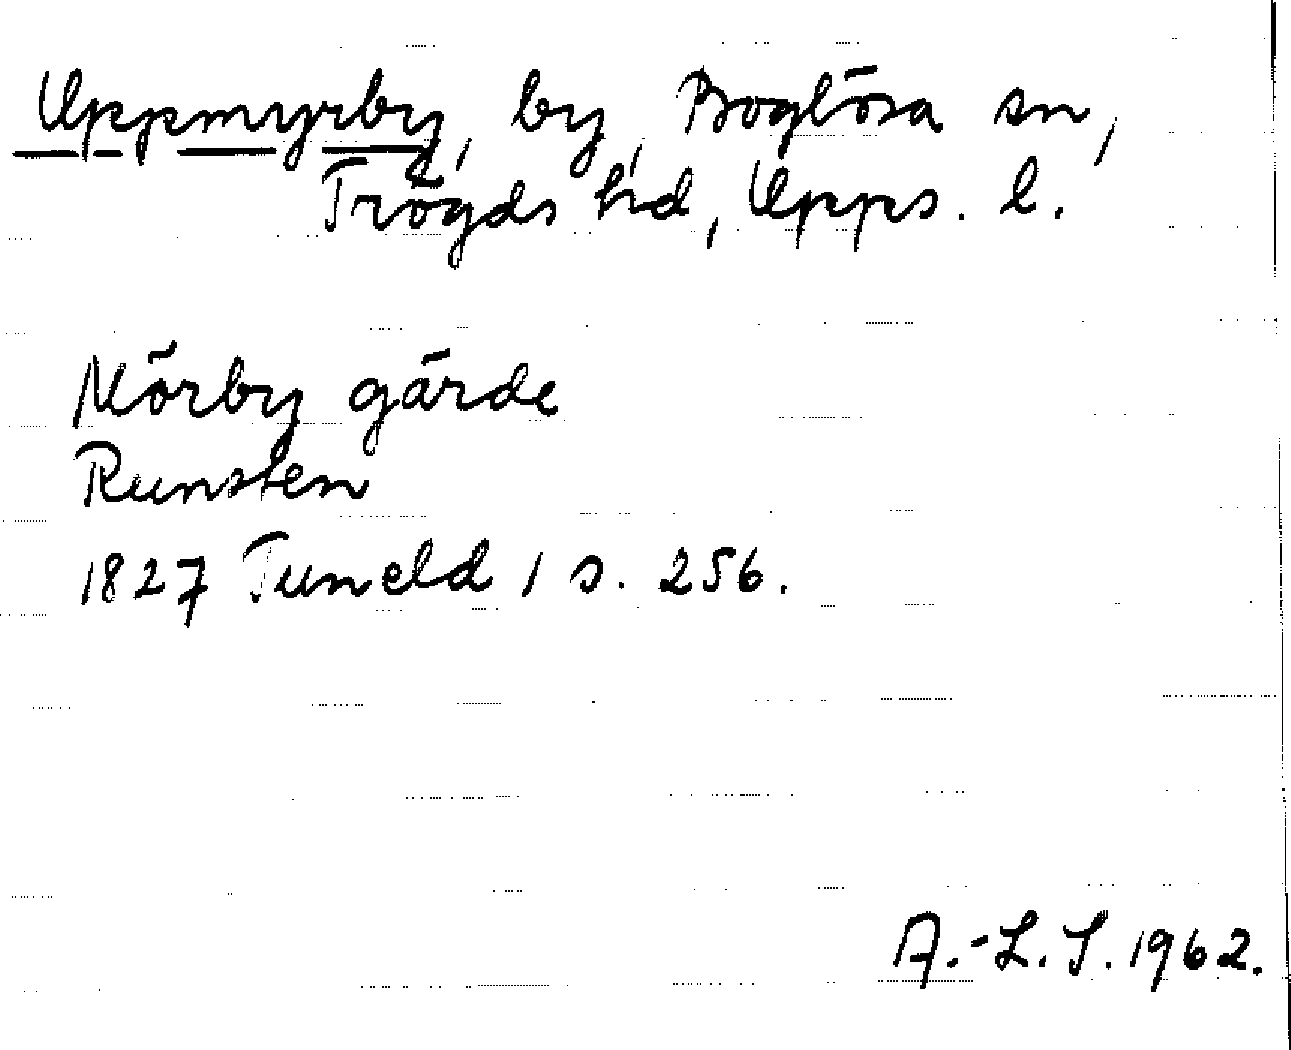 Uppmyrby, by, Boglösa sn,
Trögds hd, Upps. l.
Mörby gärde
Runsten
1827 Tuneld 1 s. 256.
A.-L. S. 1962.